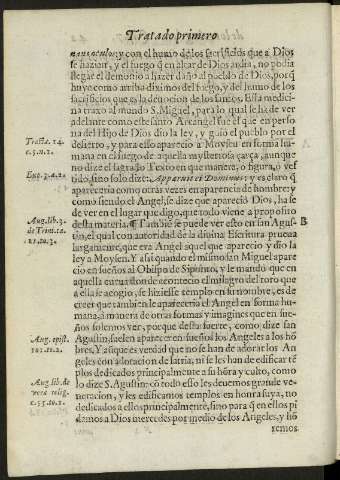 Tratado primero
y con el humo de los sacrificios que a Dios
se hazian, y el fuego q̃ en el altar de Dios ardia, no podia
llegar el demonio a hazer daño al pueblo de Dios, porq̃
huye como arriba diximos del fuego, y del humo de los
sacrificios que es la deuocion de los santos. Esta medici
na traxo al mundo S. Miguel, para lo qual se ha de ver
adelante como este santo Arcangel fue el que en perso
na del Hijo de Dios dio la ley, y guiò el pueblo por el
desierto, y para esto aparecio a Moysen en forma hu
mana en el fuego de aquella mysteriosa çarça, aunque
no dize el sagrado Texto en que manera, o figura, ò ves
tido, sino solo dize: Apparuit ei Dominus: y es claro q̃
apareceria como otras vezes en aparencia de hombre y
como siendo el Angel, se dize que aparecio Dios, ha se
de ver en el lugar que digo, que todo viene a proposito
desta materia. ¶ Tambiẽ se puede ver esto en san Agus
tin, el qual con autoridad de la diuina Escritura prueua
largamente, que era Angel aquel que aparecio y dio la
ley a Moysen. Y assi quando el mismo san Miguel apare
cio en sueños al Obispo de Siponto, y le mandò que en
aquella cueua donde acontecio el milagro del toro que
a ella se acogio, se hiziesse templo en su nombre, es de
creer que tambien le apareceria el Angel en forma hu
mana, a manera de otras formas y imagines que en sue
ños solemos ver, porque desta suerte, como dize san
Agustin, suelen aparecer en sueños los Angeles a los hõ
bres. Y assi que es verdad que no se han de adorar los An
geles con adoracion de latria, ni se les han de edificar tẽ
plos dedicados principalmente a su hõra y culto, como
lo dize S. Agustin: cõ todo esso les deuemos grande ve
neracion, y les edificamos templos en honra suya, no
dedicados a ellos principalmente, sino para q̃ en ellos pi
damos a Dios mercedes por medio de los Angeles, y hõ
remos
Tracta. 24.
Exo. 3.a.2.
Aug. lib. 3.
de Trini. ca.
B
Aug. epist.
Aug. lib. de
vera relig.
c. 55. to. 1.